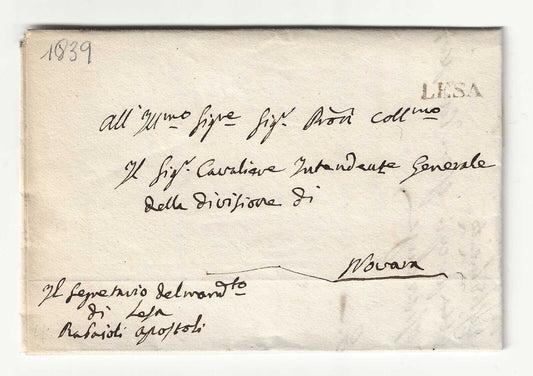 1839
LESA
All' Ill.mo Sig.re Sig.r Pron Coll.mo
Il Sig.r Cavaliere Intendente Generale
della divisione di
Novara
Il Segretario del mand.to
di Lesa
Rafaioli Apostoli